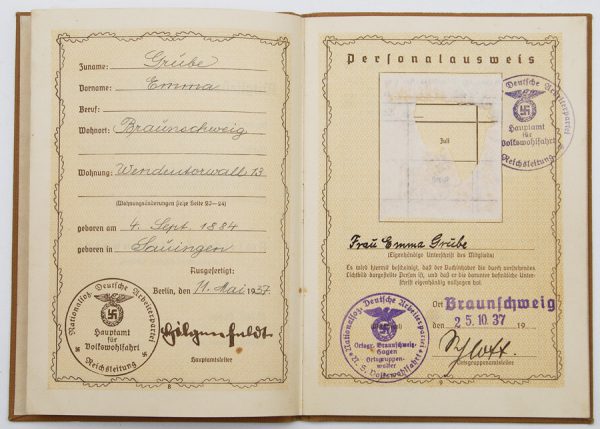 Zuname: Grübe
Vorname: Emma
Beruf:
Wohnort: Braunschweig
Wohnung: Wendentorwall 13
(Wohnungsänderungen siehe Seite 20—24)
geboren am 4. Sept. 1884
geboren in Sauingen
Ausgefertigt:
Berlin, den 11. Mai 1937.
Nationalsoz. Deutsche Arbeiterpartei
Hauptamt
für
Volkswohlfahrt
Reichsleitung
Hilgenfeldt
Hauptamtsleiter
8
Personalausweis
Juli
Deutsche Arbeiterpartei
Hauptamt
für
Volkswohlfahrt
Reichsleitung
Frau Emma Grübe
(Eigenhändige Unterschrift des Mitglieds)
Es wird hiermit bescheinigt, daß der Buchinhaber die durch vorstehendes
Lichtbild dargestellte Person ist, und daß er die darunter befindliche Unter-
schrift eigenhändig vollzogen hat.
Ort Braunschweig
den 25.10.37 19
Nationalsoz. Deutsche Arbeiterpartei
Ortsgr. Braunschweig-
Hagen
Ortsgruppen-
walter
N.S. Volkswohlfahrt
Ortsgruppenamtsleiter
9